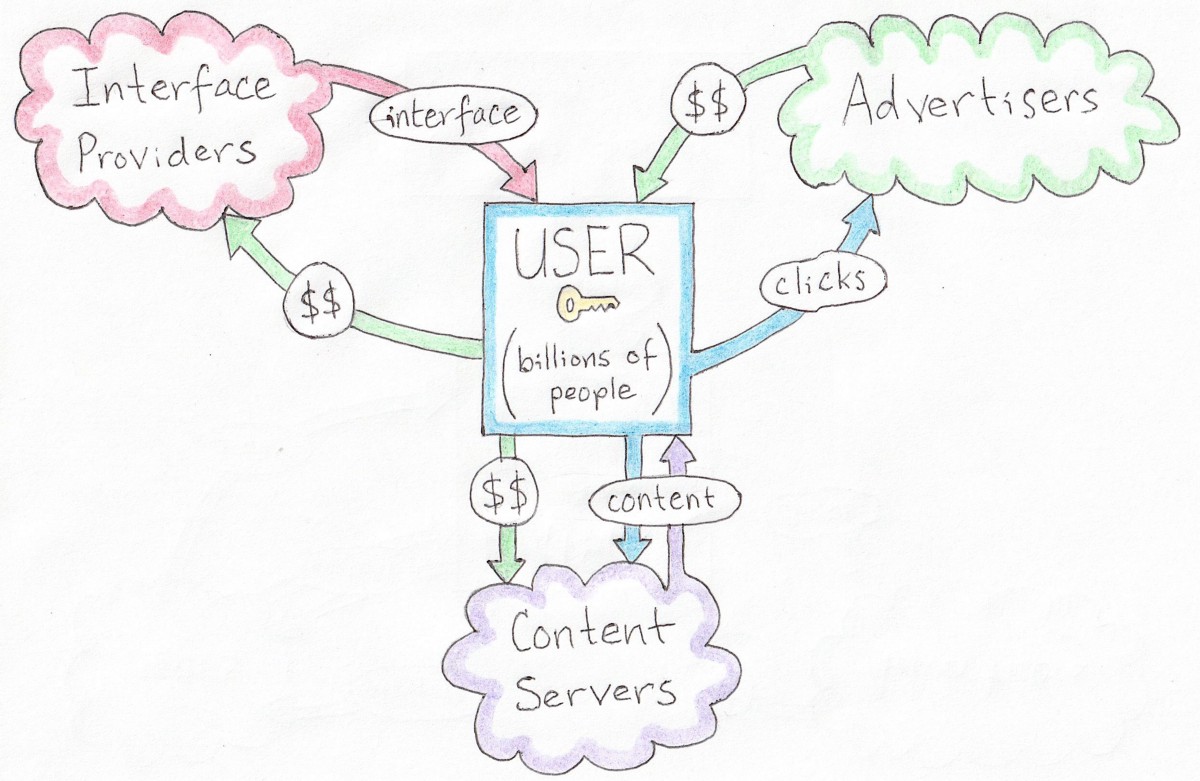 Interface
Providers
interface
$$
Advertisers
$$
USER
(billions of
people)
clicks
$$
content
Content
Servers